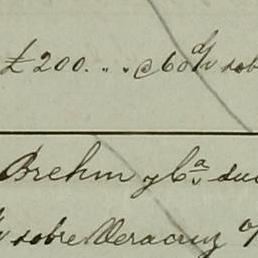 £ 200. .. @ 60 d/v sob
Brehm y Cª su
sobre Veracruz o/